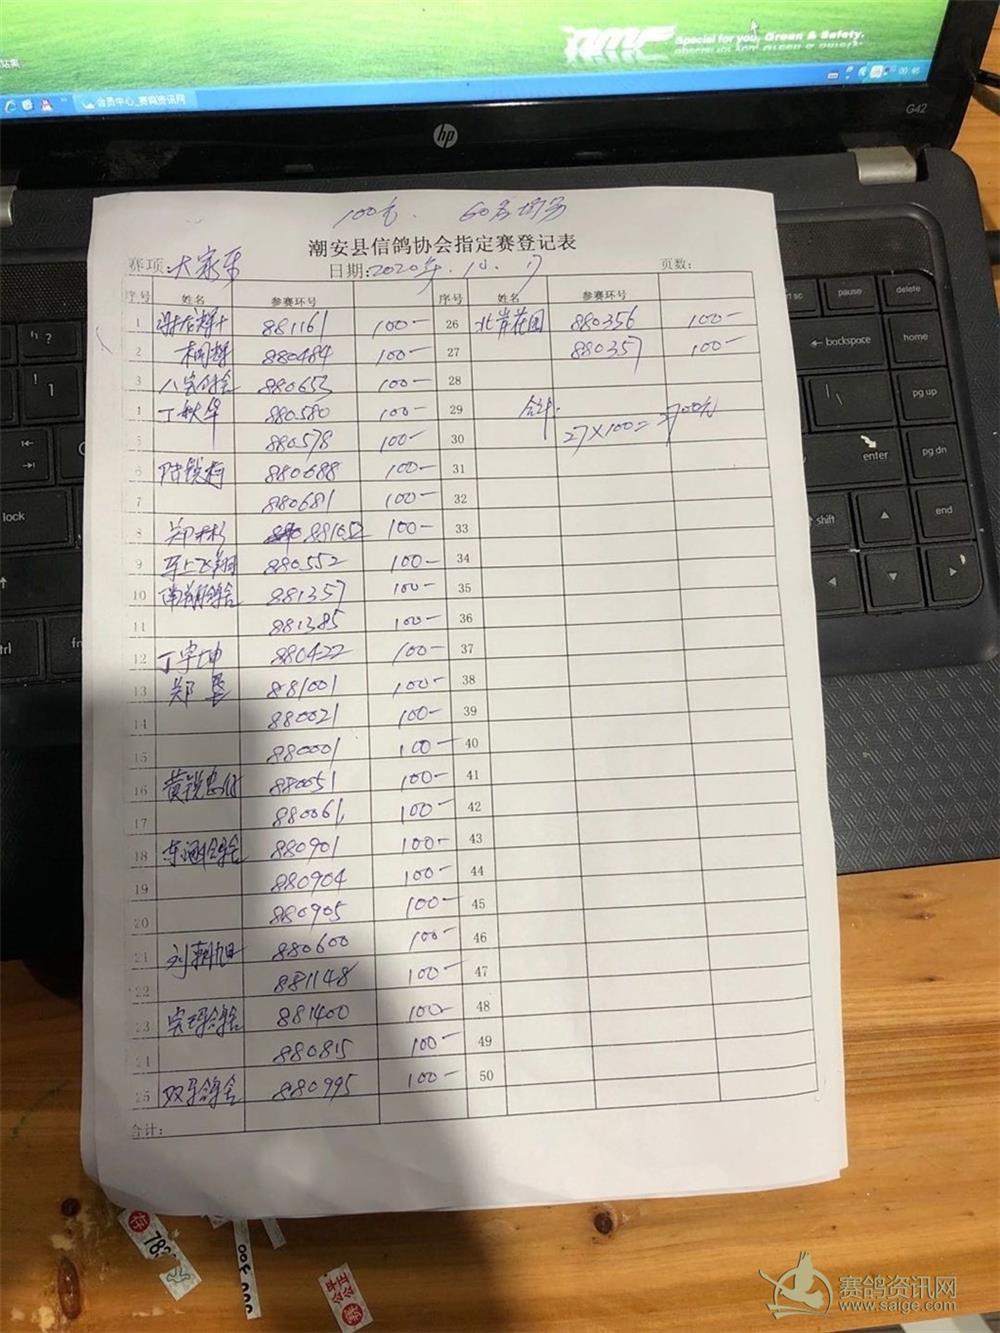 Special for you, Green & Safety.
00:46
会员中心_赛鸽资讯网
G42
hp
100元. 60名
潮安县信鸽协会指定赛登记表
赛项: 日期:2020年.10.17 页数:
序号 姓名 参赛环号 序号 姓名 参赛环号
1 881161 100- 26 北岸花园 880356 100-
2 880484 100- 27 880357 100-
3 880653 100- 28
丁敏华 880580 100- 29 合计.
5 880578 100- 30 27×100=2700元
6 880688 100- 31
7 880681 100- 32
8 881052 100- 33
9 880552 100- 34
10 南翔鸽舍 881357 100- 35
11 881385 100- 36
12 丁宇坤 880422 100- 37
13 881001 100- 38
14 880021 100- 39
15 880001 100- 40
16 880051 100- 41
17 880061 100- 42
18 880901 100- 43
19 880904 100- 44
20 880905 100- 45
21 刘朝旭 880600 100- 46
22 881148 100- 47
23 881400 100- 48
24 880815 100- 49
25 880995 100- 50
合计:
pause
delete
backspace
home
pg up
enter
pg dn
shift
end
lock
赛鸽资讯网
www.saige.com